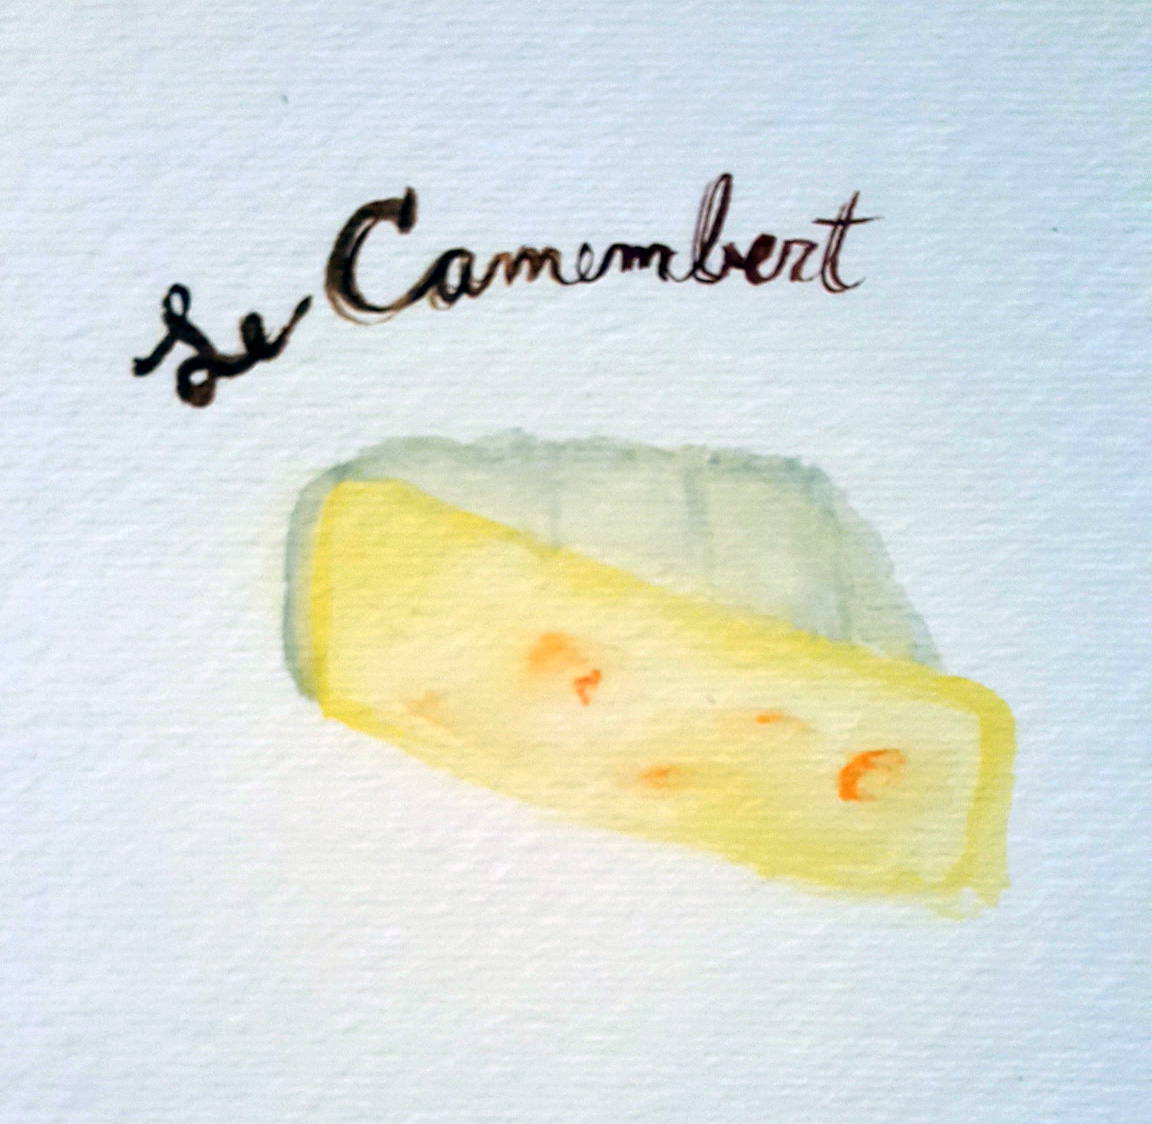 Le Camembert